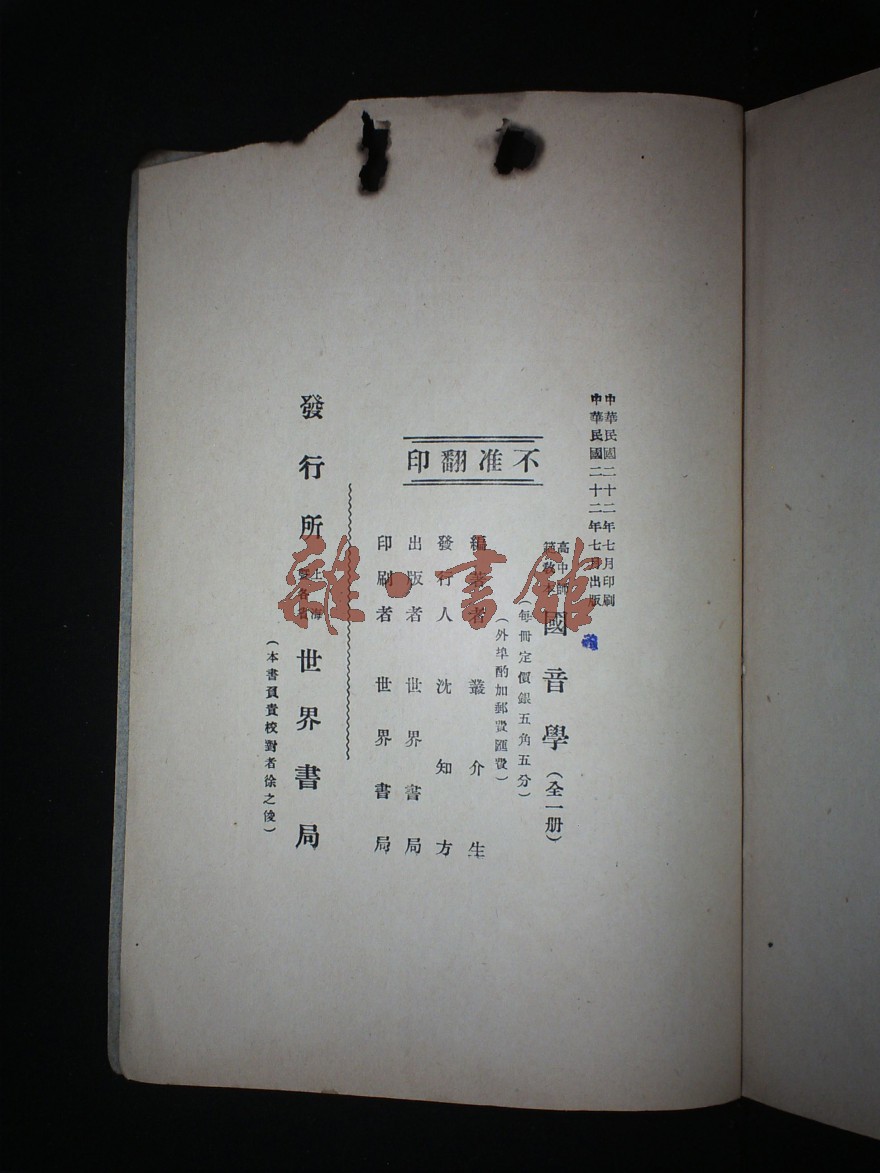 中華民國二十二年七月印刷
中華民國二十二年七月出版
高中師
範教本
國音學(全一册)
(每冊定價銀五角五分)
(外埠酌加郵費匯費)
不准翻印
編著者 叢介生
發行人 沈知方
出版者 世界書局
印刷者 世界書局
發行所
上海
暨各省
世界書局
(本書負責校對者徐之俊)
雜·書館